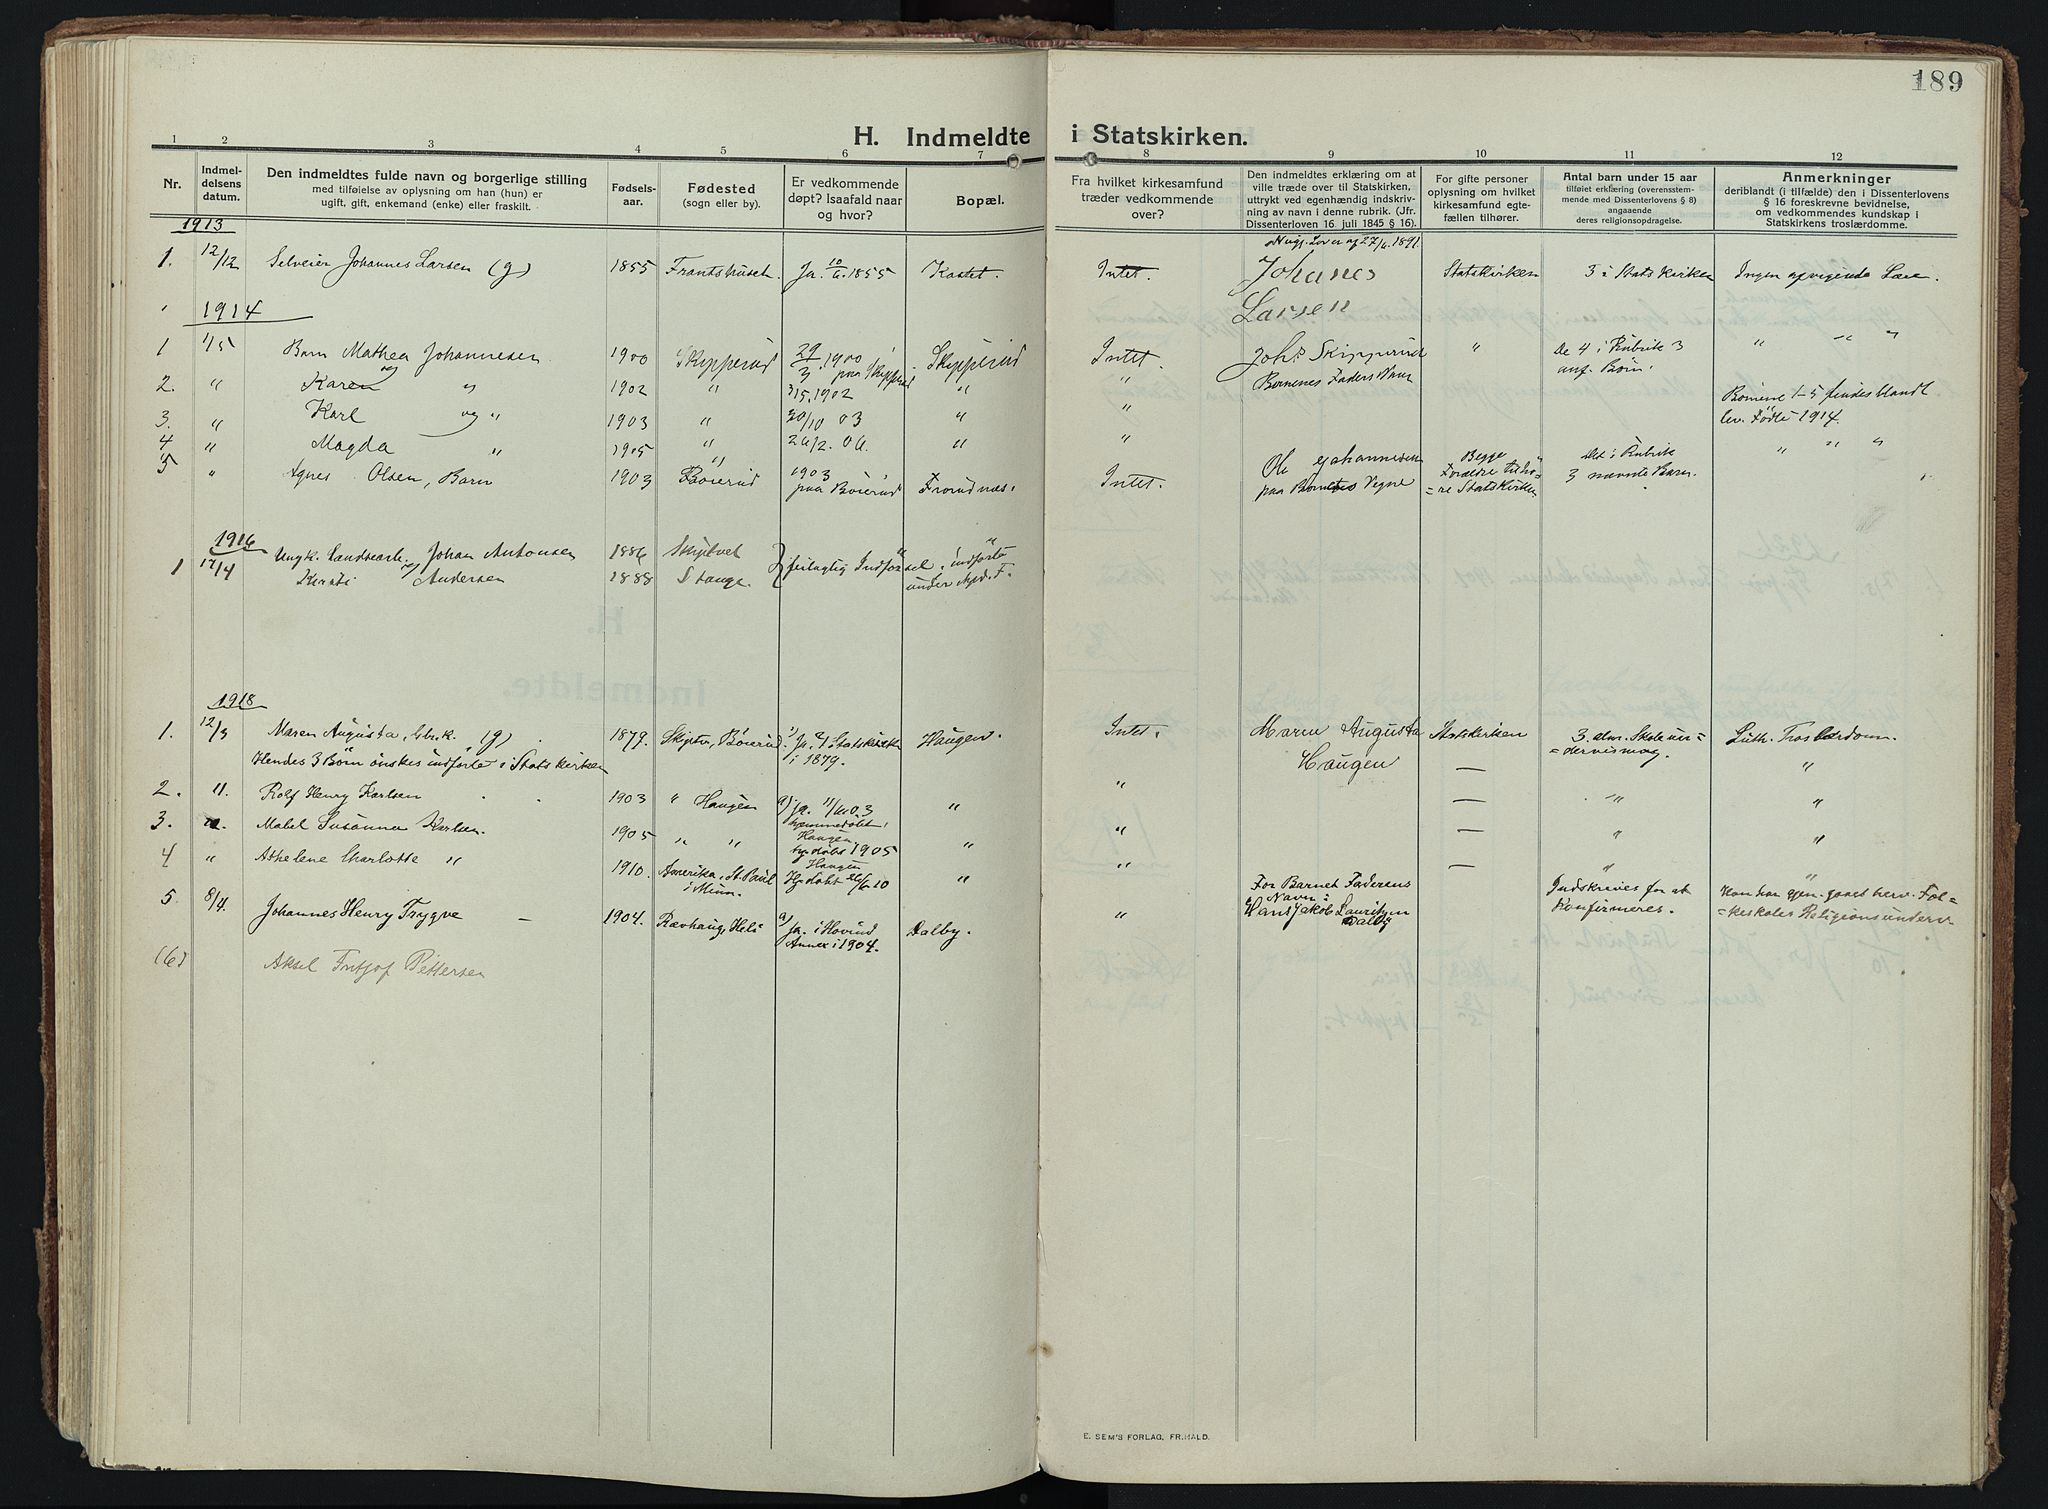 189
H. Indmeldte i Statskirken.
1 2 3 4 5 6 7 8 9 10 11 12
Nr.
Indmel-
delsens
datum.
Den indmeldtes fulde navn og borgerlige stilling
med tilføielse av oplysning om han (hun) er
ugift, gift, enkemand (enke) eller fraskilt.
Fødsels-
aar.
Fødested
(sogn eller by).
Er vedkommende
døpt? Isaafald naar
og hvor?
Bopæl.
Fra hvilket kirkesamfund
træder vedkommende
over?
Den indmeldtes erklæring om at
ville træde over til Statskirken,
uttrykt ved egenhændig indskriv-
ning av navn i denne rubrik. (Jfr.
Dissenterloven 16. juli 1845 § 16).
For gifte personer
oplysning om hvilket
kirkesamfund egte-
fællen tilhører.
Antal barn under 15 aar
tilføiet erklæring (overensstem-
mende med Dissenterlovens § 8)
angaaende
deres religionsopdragelse.
Anmerkninger
deriblandt (i tilfælde) den i Dissenterlovens
§ 16 foreskrevne bevidnelse,
om vedkommendes kundskap i
Statskirkens troslærdomme.
1913
1. 12/12 Selveier Johannes Larsen (g) 1855 Frantshuset. Ja. 10/6 1855 Kastet. Intet. Johanes Statskirken 3 i Statskirken Ingen afvigende Lære.
Larsen
1914
1 1/5 Barn Mathea Johannesen 1900 Skipperud 29/3 1900 Skipperud Intet. Joh. Skipperud " De 4 i Rubrik 3 " " "
og paa Skipperud anf. Børn.
2. " Karen " 1902 " 3/5.1902 " " Børnenes Faders Navn
Børnene 1-5 findes blandt
3. " Karl og " 1903 " 20/10 03 " "
lev. Fødte 1914.
4 " Magda " 1905 " 26/2. 06. " "
5 " Agnes Olsen, Barn 1903 Bøierud 1903 Frorudnæs. Intet. Ole Johannesen Begge Det i Rubrik " " "
paa Bøierud paa Barnets Vegne Forældre tilhø= 3 nævnte Barn.
=re Statskirken
1916
1 17/4 Ungk. Landsearb. Johan Antonsen 1886 Skiptvet feilagtig Indførsel, indførte
og Kirsti Andersen 1888 Stange. under
1918
1. 12/3 Maren Augusta, (g) 1879. Skiptv, Bøierud. Ja, i Statskirken Haugen. Intet. Maren Augusta Statskirken 3. alm. Skoleuner= Luth. Troslærdom.
Hendes 3 Børn ønskes indførte i Statskirken i 1879. Haugen =dervisning. "
2. 11. Rolf Henry Karlsen 1903 " Haugen ja. 11/6 03 " " — " "
3. Mabel Susanna Karlsen. 1905 " " hjemmedøbt, Haugen " " — " "
4 " Athelene Charlotte " 1910. Amerika, St. Paul hj. døbt 1905 Haugen " " — " "
i Minn. Hj. døbt 6/6 10
5 8/4. Johannes Henry Trygve — 1904. Rævhaug, ja. i Hovind Dalby. " For Barnet Faderens Indskrives for at Han har gjen. gaaet herv. Fol=
Annex i 1904. Navn: Konfirmeres. =keskoles Religionsunderv.
Hans Jakob Lauritzen
Dalby
(6) Aksel Fritjof Pettersen
E. SEM'S FORLAG, FR.HALD.